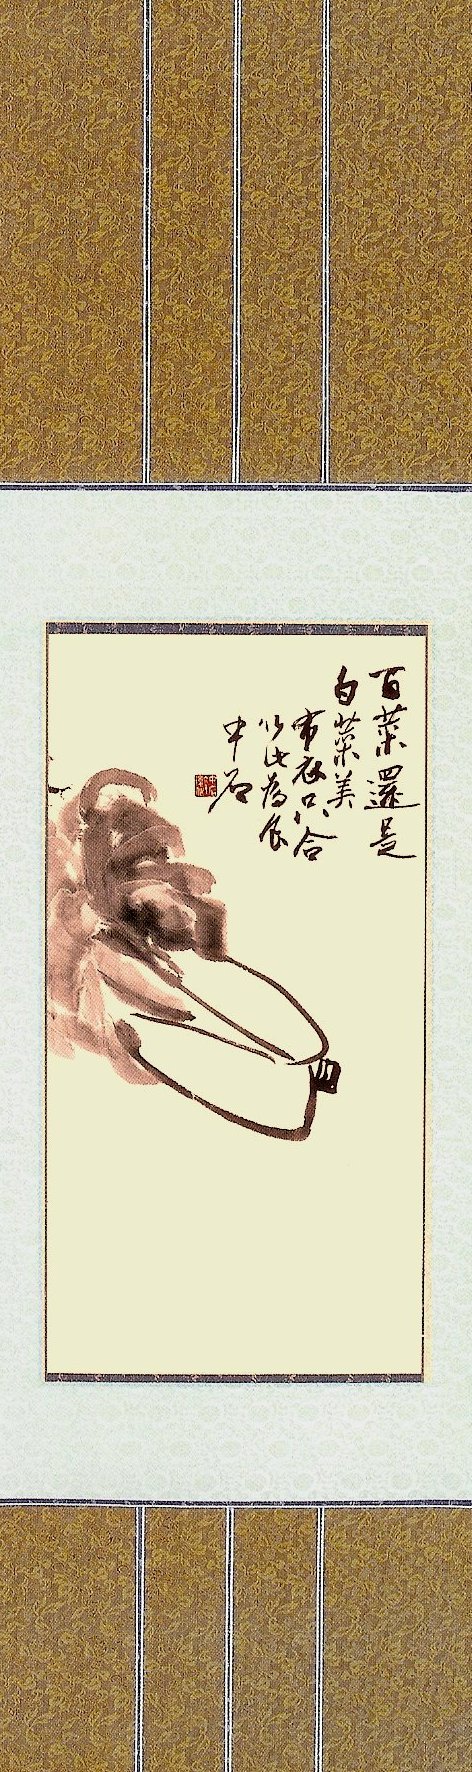 百菜還是
白菜美
布衣只合
以此為食
中石